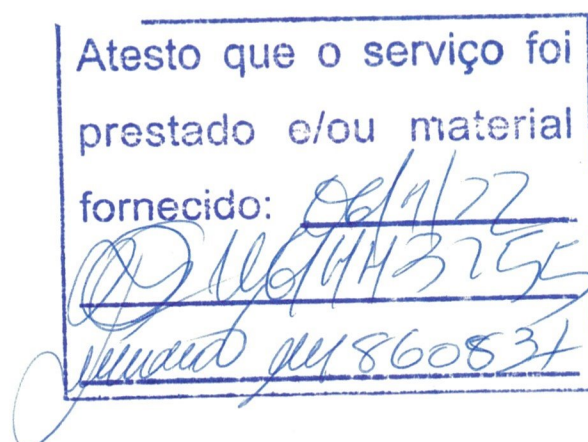 Atesto que o serviço foi
prestado e/ou material
fornecido: 06/1/22
860837